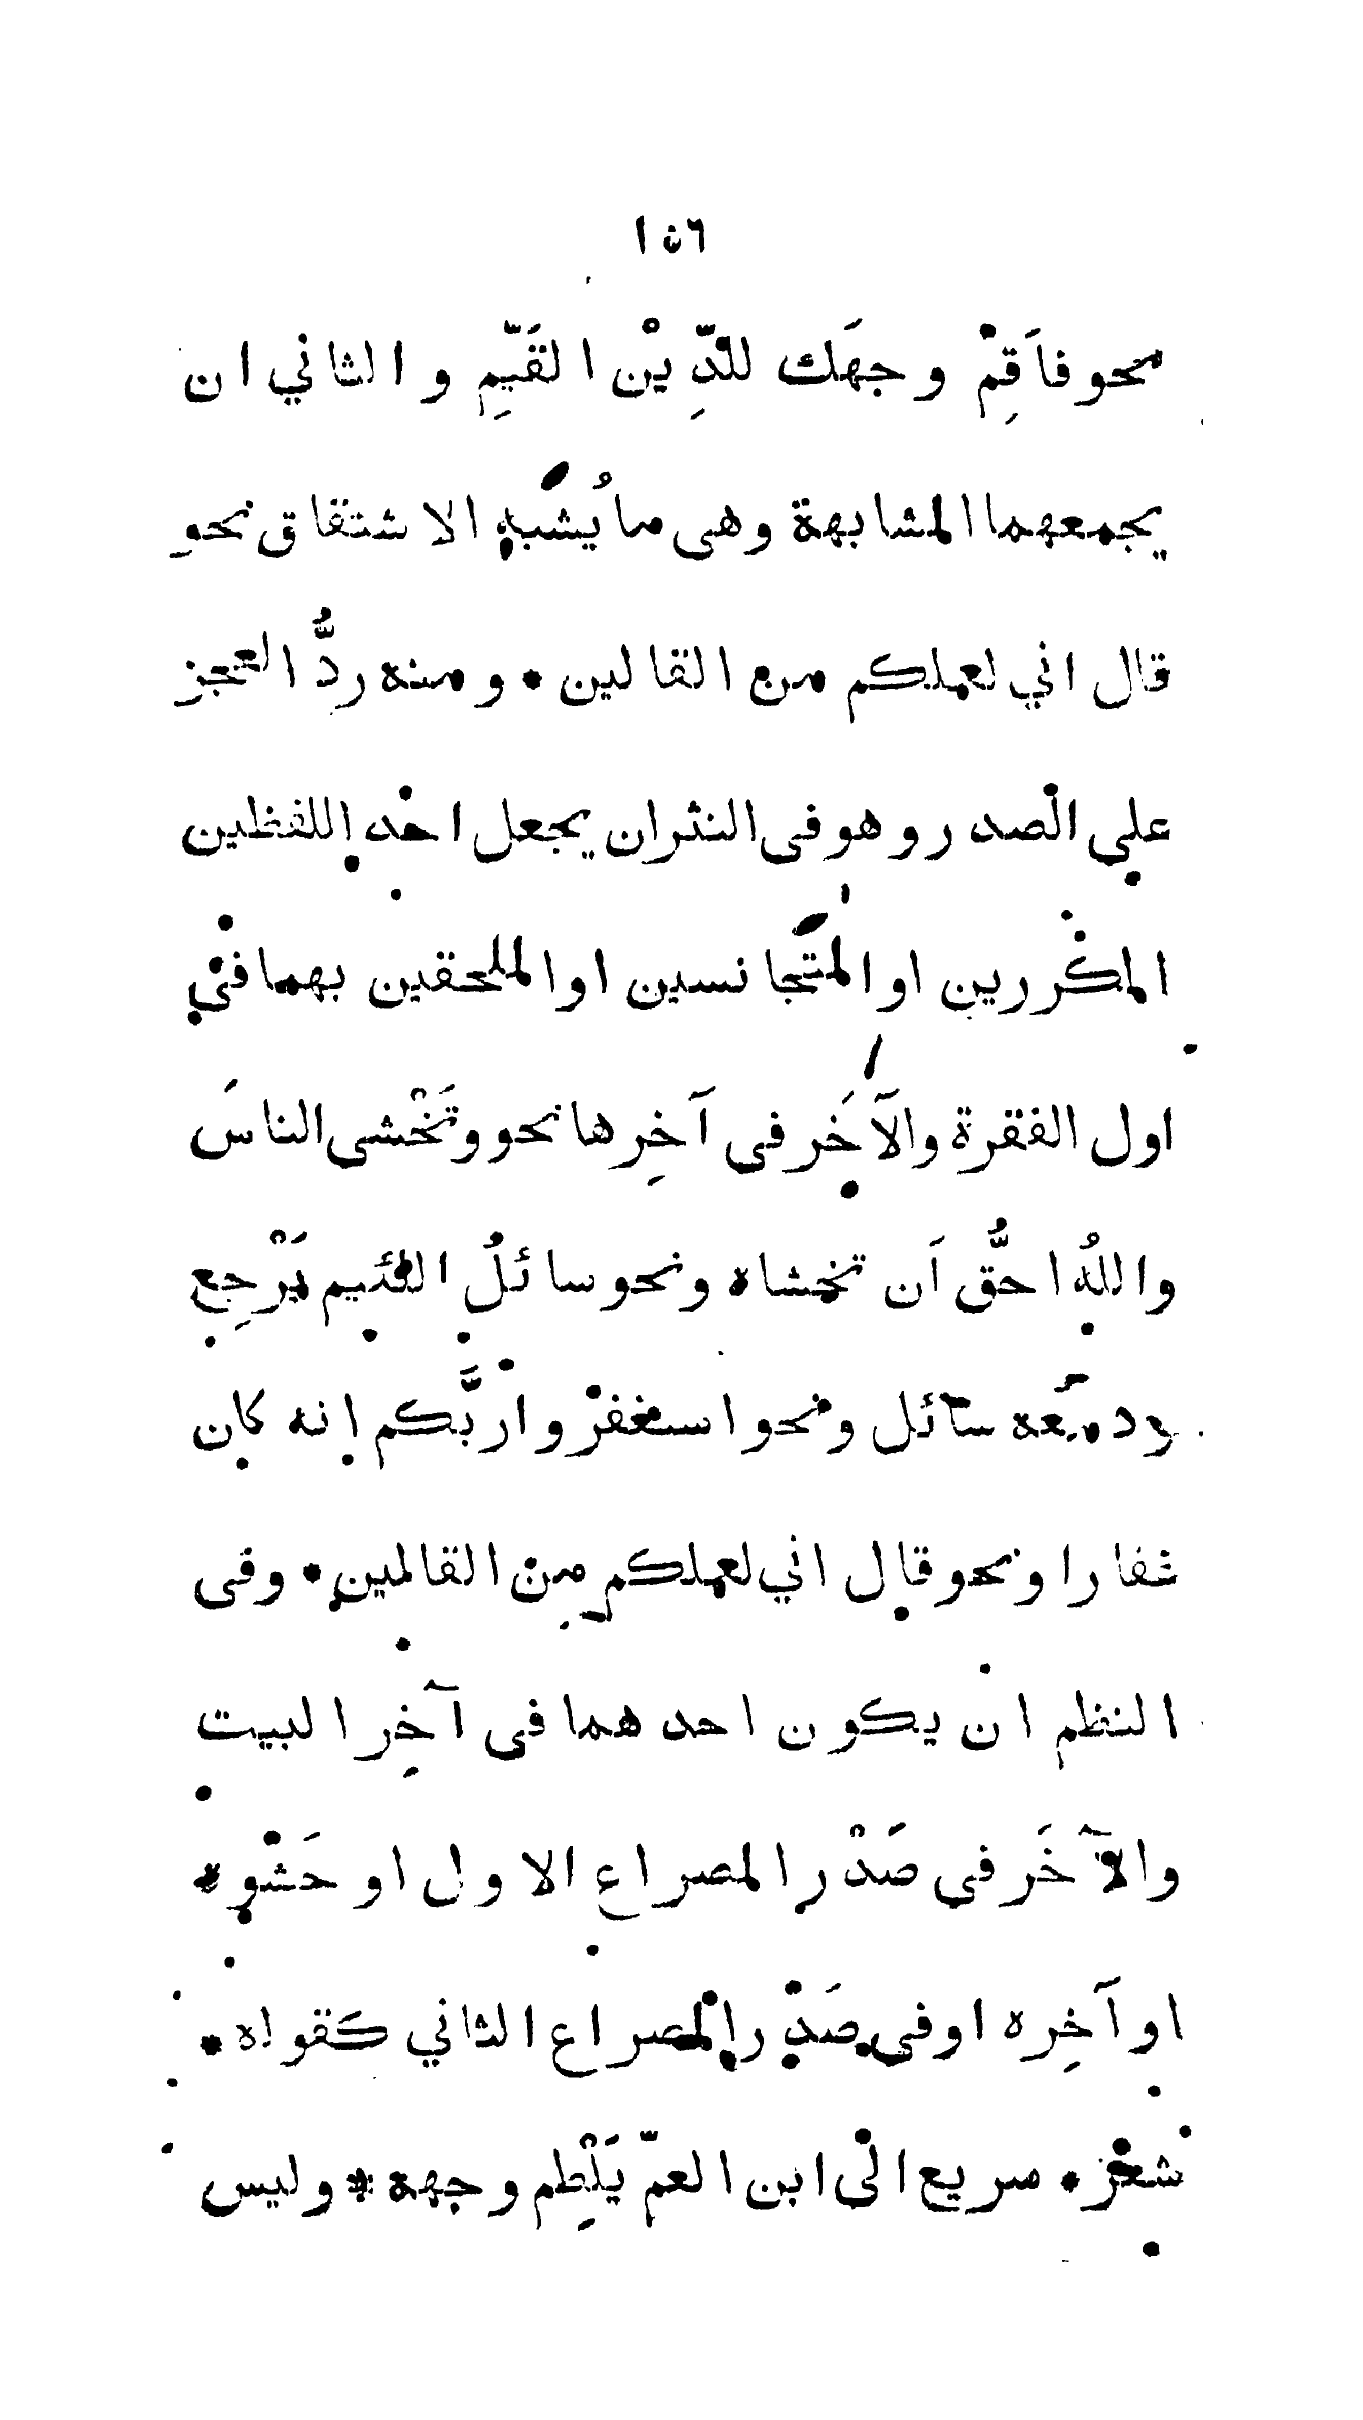 ١٥٦
نحو فاَقِمْ وجهَك للدِّيْن القَيِّمِ والثاني ان
يجمعهما المشابهة وهى ما يُشبه الاشتقاق نحو
قال اني لعملكم من القالين * ومنه ردُّ العجز
علي الصدر وهو فى النثر ان يجعل احد اللفظين
المكررين او المتجانسين او الملحقين بهما في
اول الفقرة والآخَر فى آخِرها نحو وتَخْشى الناسَ
واللهُ احقُّ اَن تخشاه ونحو سائلُ اللئيم يَرْجِع
ودمعه سائل ونحو استغفروا ربَّكم إنه كان
غفارا ونحو قال اني لعملكم من القالين * وفى
النظم ان يكون احدهما فى آخِر البيت
والآخَر فى صَدْر المصراع الاول او حَشْوه
او آخِره او في صَدْر المصراع الثاني كقوله *
شعر * سريع الى ابن العمّ يَلْطِم وجهه * وليس